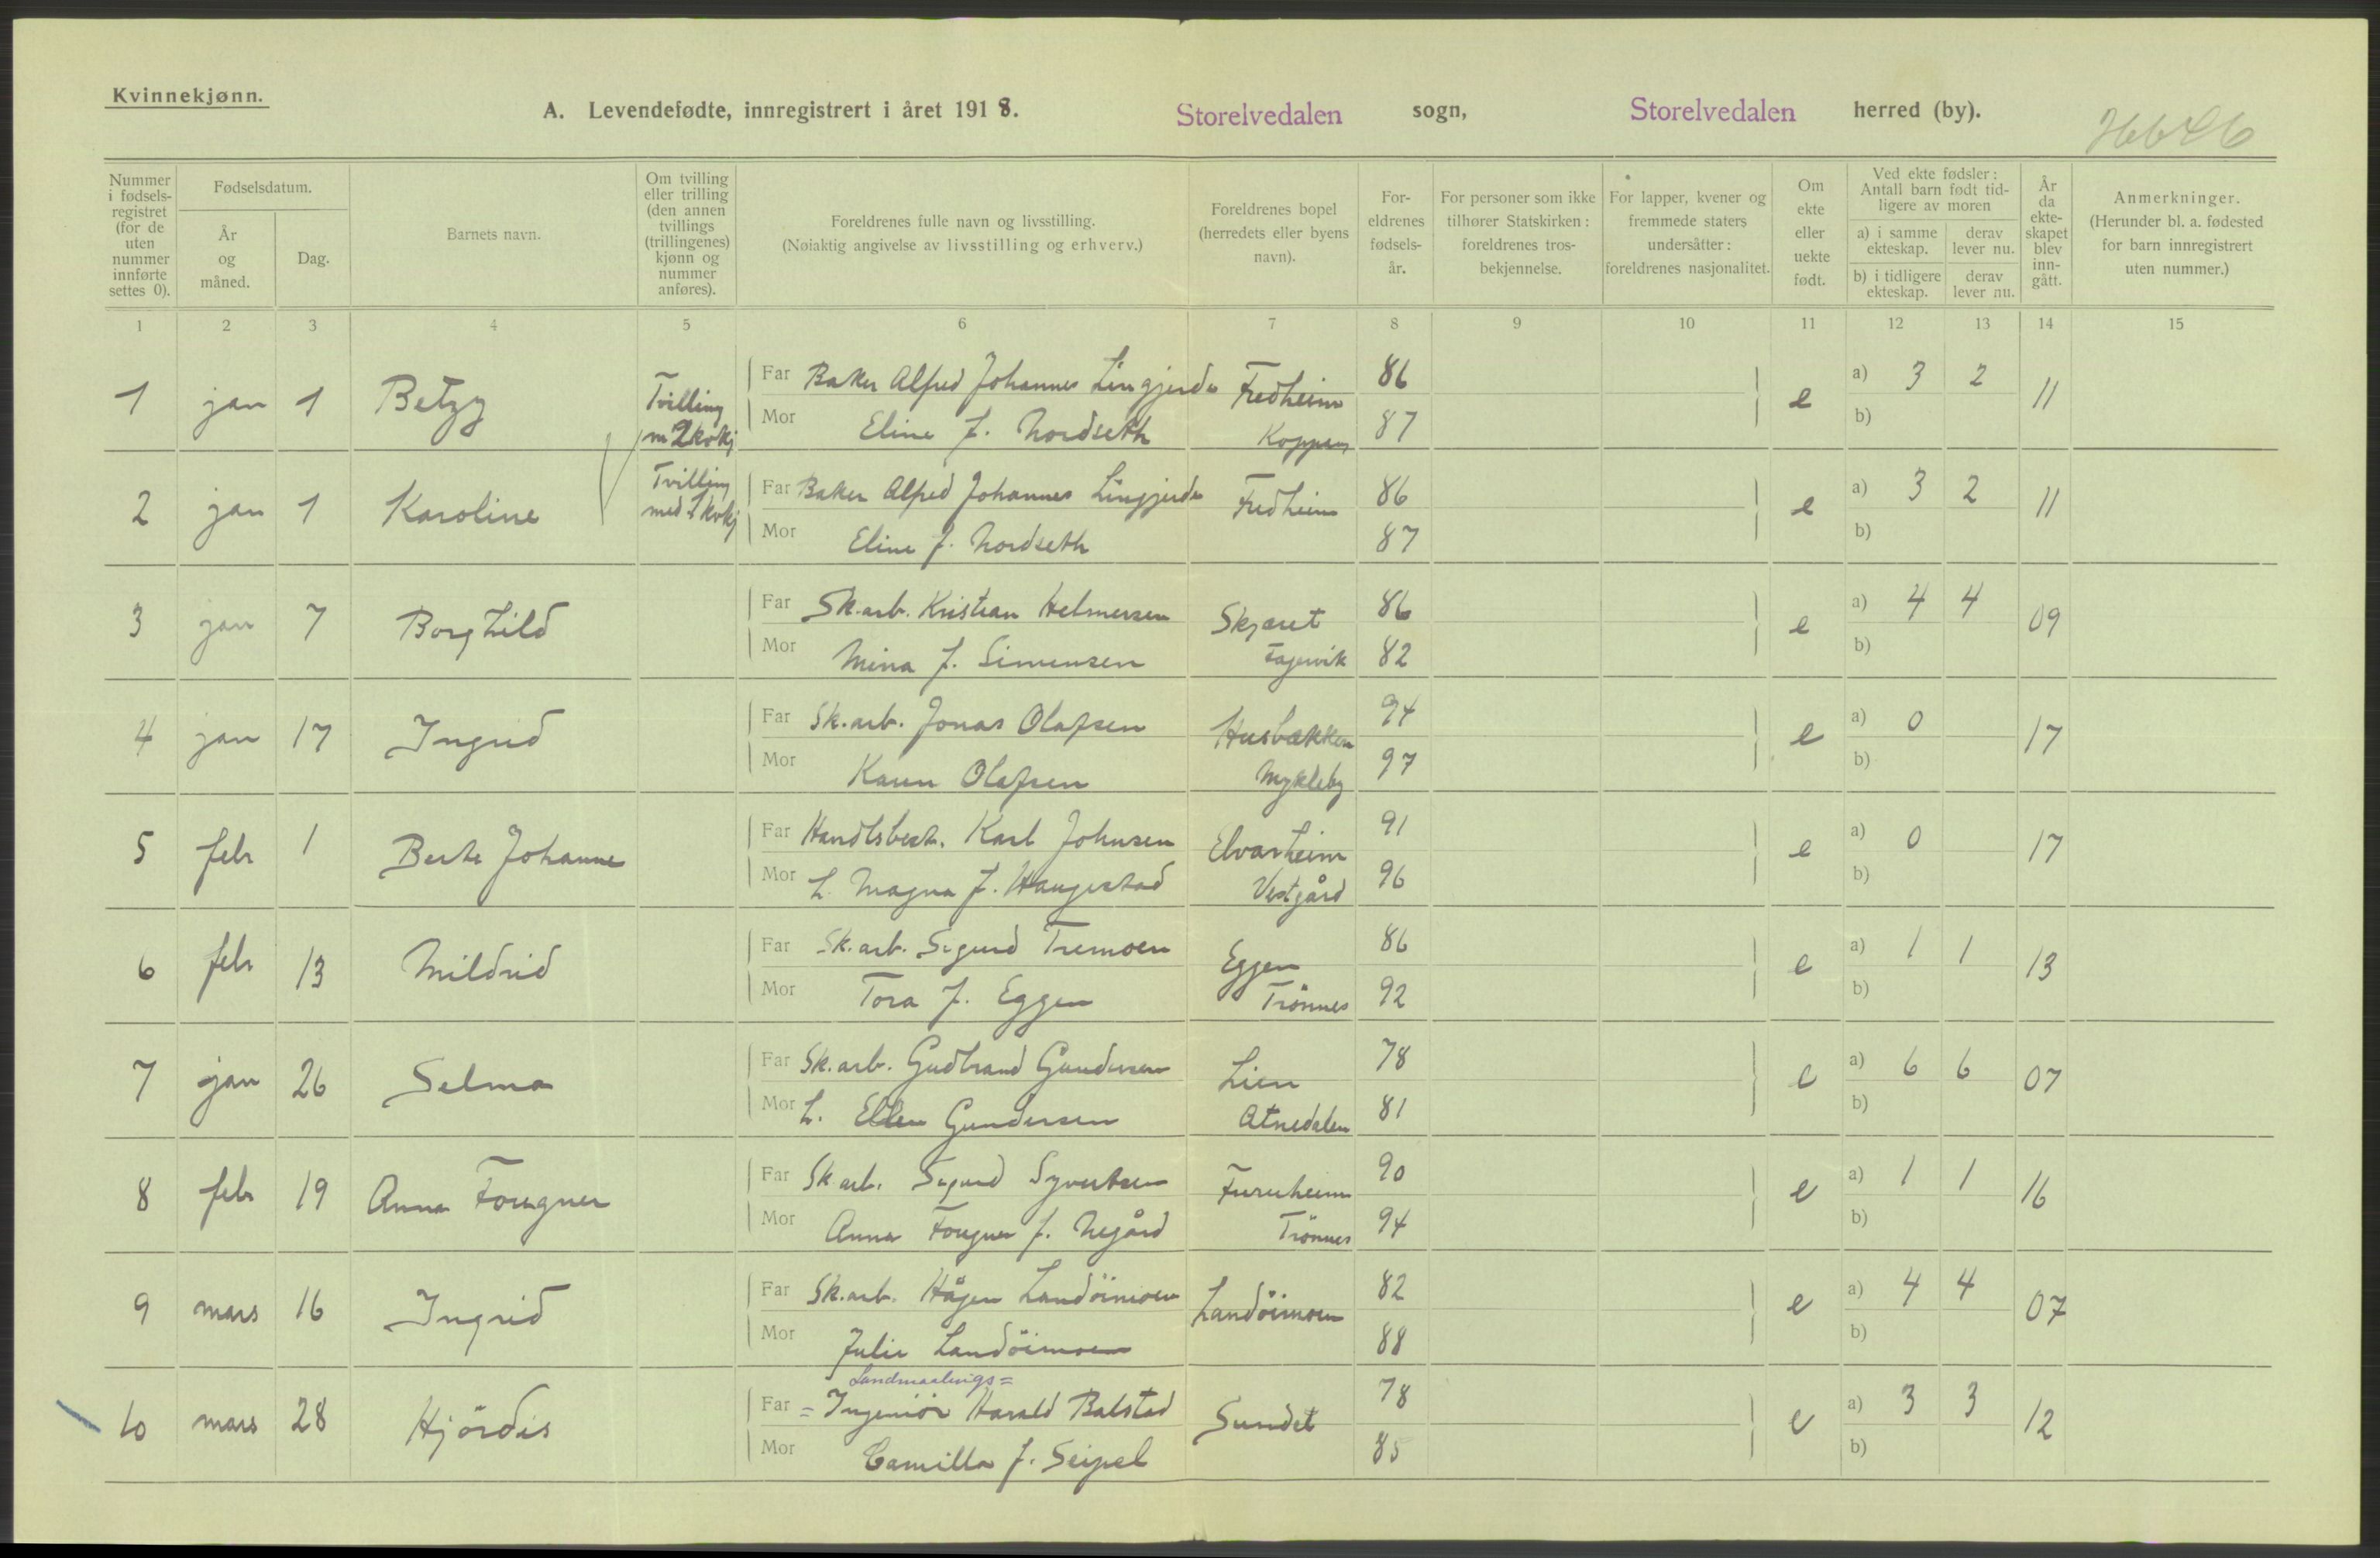 Kvinnekjønn.
A. Levendefødte, innregistrert i året 1918. Storelvedalen sogn, Storelvedalen herred (by).
Nummer i fødsels-registret (for de uten nummer innførte settes 0).
Fødselsdatum.
År og måned.
Dag.
Barnets navn.
Om tvilling eller trilling (den annen tvillings (trillingenes) kjønn og nummer anføres).
Foreldrenes fulle navn og livsstilling.
(Nøiaktig angivelse av livsstilling og erhverv.)
Foreldrenes bopel (herredets eller byens navn).
For-eldrenes fødsels-år.
For personer som ikke tilhører Statskirken: foreldrenes tros-bekjennelse.
For lapper, kvener og fremmede staters undersåtter: foreldrenes nasjonalitet.
Om ekte eller uekte født.
Ved ekte fødsler: Antall barn født tid-ligere av moren
a) i samme ekteskap. derav lever nu.
b) i tidligere ekteskap. derav lever nu.
År da ekte-skapet blev inn-gått.
Anmerkninger.
(Herunder bl. a. fødested for barn innregistrert uten nummer.)
1 2 3 4 5 6 7 8 9 10 11 12 13 14 15
1 jan 1 Betzy Tvilling m 2 kvkj Far Baker Alfred Johannes Lingjerde Fredheim 86 e a) 3 2 11
Mor Eline f. Nordseth Koppang 87 b)
2 jan 1 Karoline Tvilling med 1 kvkj Far Baker Alfred Johannes Lingjerde Fredheim 86 e a) 3 2 11
Mor Eline f. Nordseth 87 b)
3 jan 7 Borghild Far Sk.arb. Kristian Helmersen Skjæret 86 e a) 4 4 09
Mor Mina f. Simensen Fagervik 82 b)
4 jan 17 Ingrid Far Sk.arb. Jonas Olafsen Husbækken 94 e a) 0 17
Mor Karen Olafsen Mykleby 97 b)
5 febr 1 Berte Johanne Far Handlsbest. Karl Johnsen Elvarheim 91 e a) 0 17
Mor L. Magna f. Haugestad Vestgård 96 b)
6 febr 13 Mildrid Far Sk.arb. Sigurd Tremoen Eggen 86 e a) 1 1 13
Mor Tora f. Eggen Trönnes 92 b)
7 jan 26 Selma Far Sk.arb. Gudbrand Gundersen Lien 78 e a) 6 6 07
Mor L. Ellen Gundersen Atnedalen 81 b)
8 febr 19 Anna Fougner Far Sk arb. Sigurd Syvertsen Furuheim 90 e a) 1 1 16
Mor Anna Fougner f. Negård Trönnes 94 b)
9 mars 16 Ingrid Far Sk.arb. Hågen Landöimoen Landöimoen 82 e a) 4 4 07
Mor Julie Landöimoen 88 b)
Landmaalings=
10 mars 28 Hjördis Far =Ingeniör Harald Balstad Sundet 78 e a) 3 3 12
Mor Camilla f. Seipel 85 b)